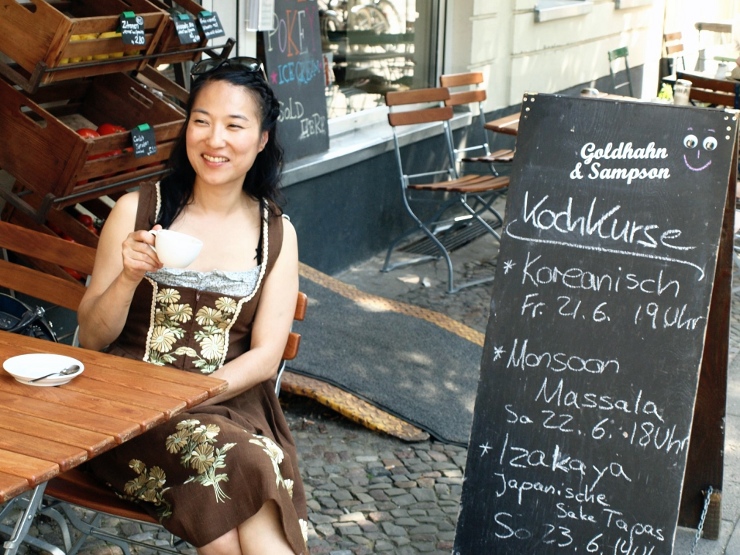 POKE
ICE CREAM
SOLD
HERE
Goldhahn
& Sampson
Kochkurse
* Koreanisch
Fr. 21.6. 19 Uhr
* Monsoon
Massala
Sa 22.6. 18 Uhr
* Izakaya
Japanische
Sake Tapas
So 23.6.